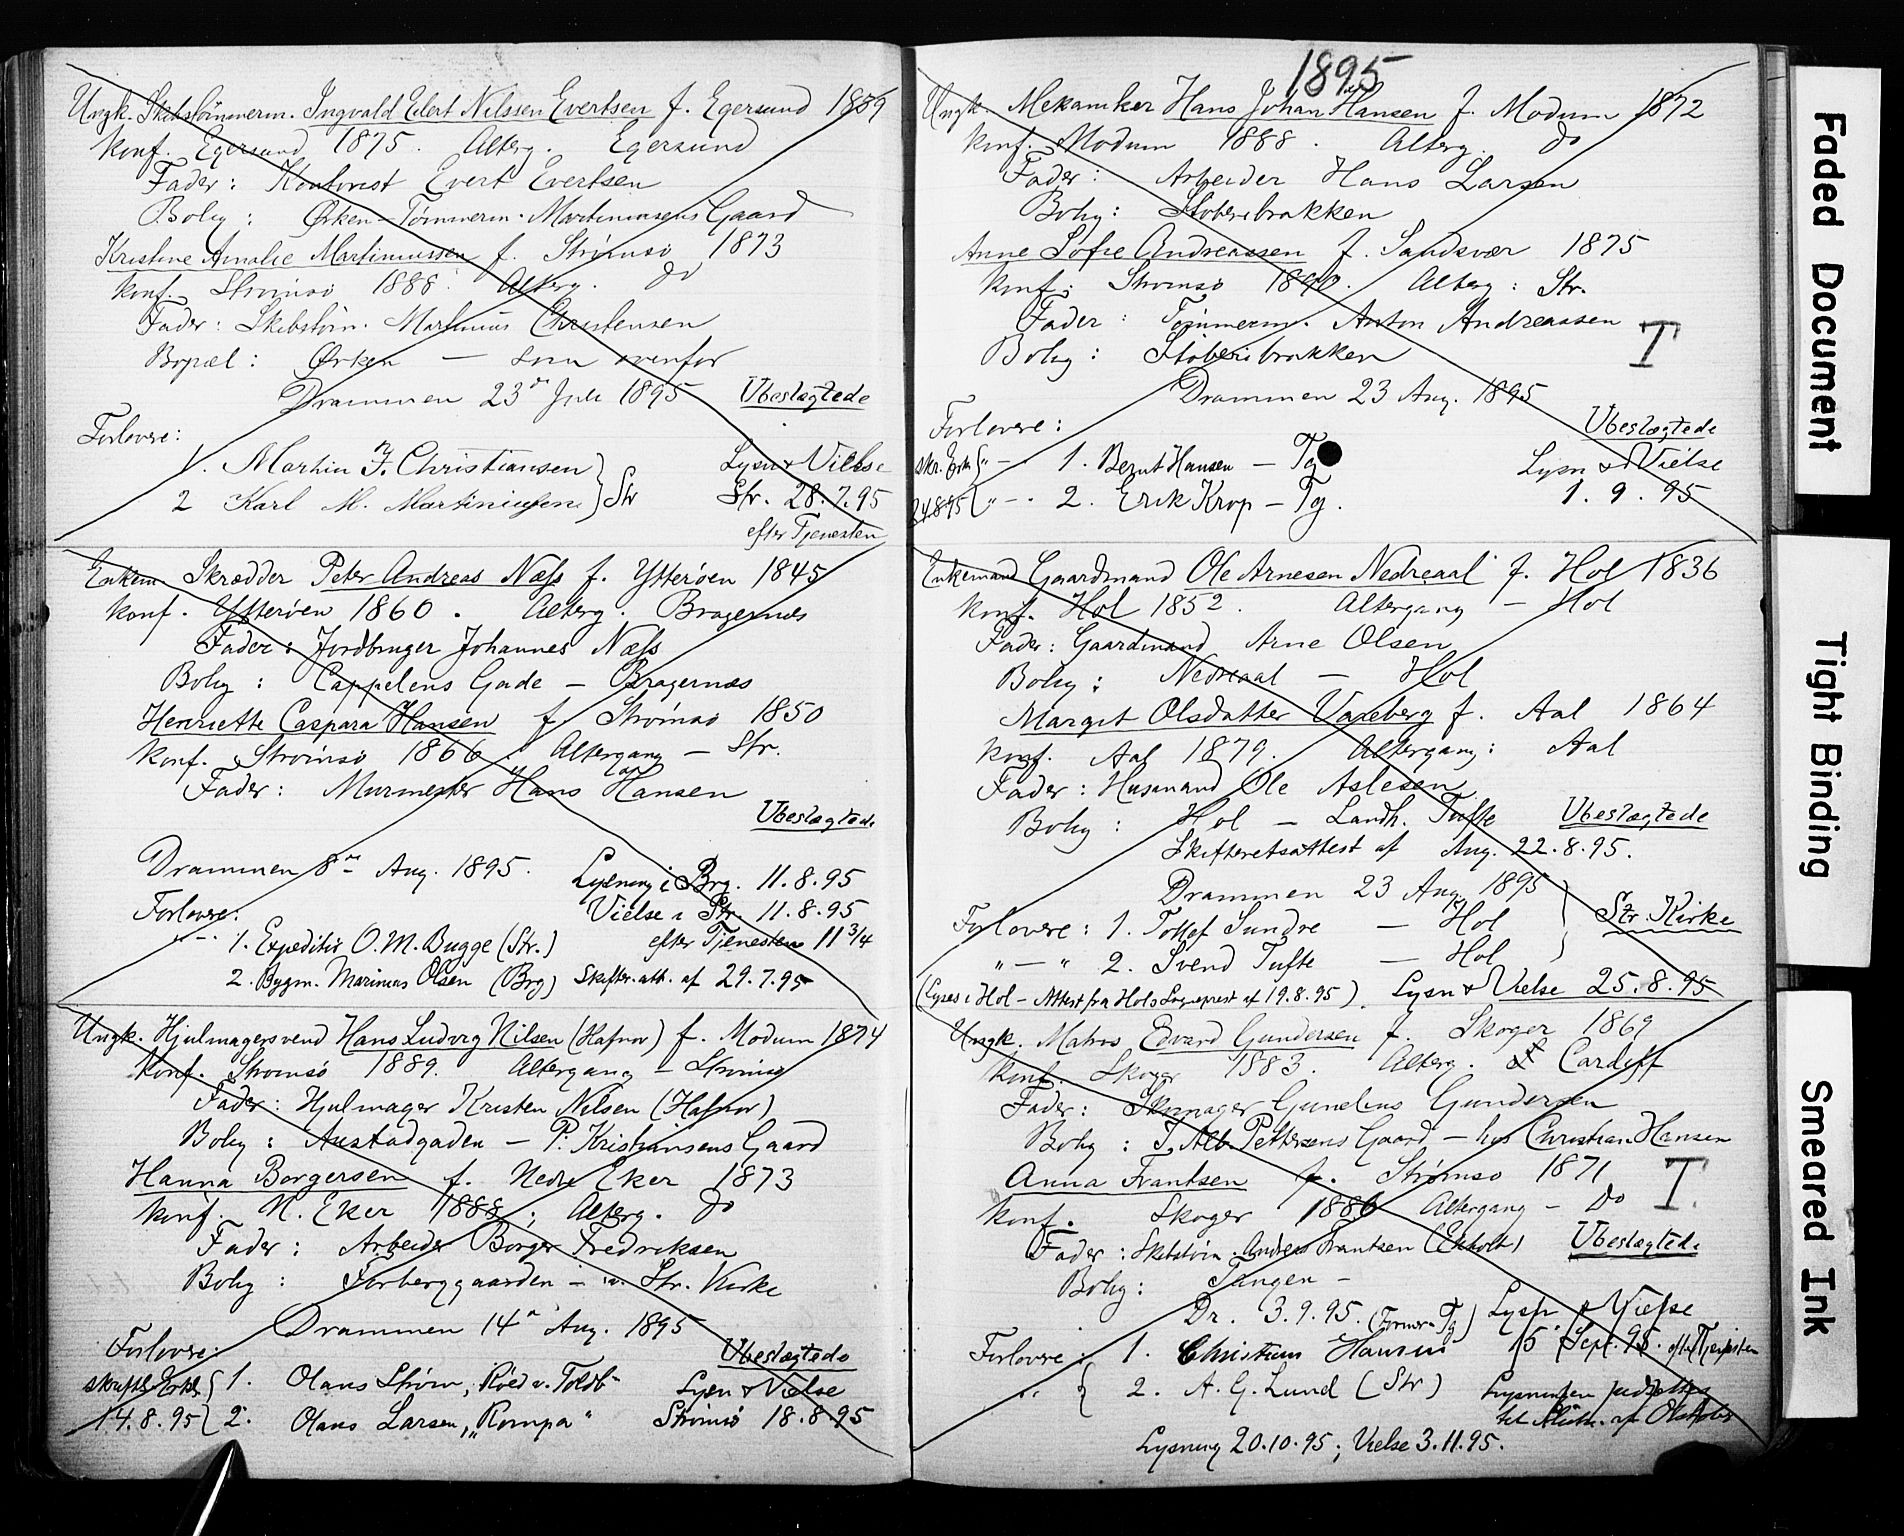 Ungk. Skibstømmerm. Ingvald Edert Nilssen Evertsen f. Egersund 1859
Konf. Egersund 1875. Alterg. Egersund
Fader: Kontorist Evert Evertsen
Bolig: Ørken - Tømmerm. Martiniusens Gaard
Kristine Amalie Martinussen f. Strømsø 1873
Konf. Strømsø 1888. Alterg. do
Fader: Skibstøm. Martinus Christensen
Bopæl: Ørken — som ovenfor
Drammen 23de Juli 1895 Ubeslægtede
Forlovere:
1. Martin J. Christiansen } Str
2 Karl M. Martiniussen
Lysn & Vielse
Str. 28.7.95
efter Tjenesten
Enkem Skrædder Peter Andreas Næss f. Ytterøen 1845
Konf. Ytterøen 1860. Alterg. Bragernes
Fader: Jordbruger Johannes Næss
Bolig: Cappelens Gade — Bragernæs
Henriette Caspara Hansen f. Strømsø 1850
Konf. Strømsø 1866. Altergang — Str.
Fader: Murmester Hans Hansen
Ubeslægtede
Drammen 8de Aug. 1895. Lysning i Brg. 11.8.95
Vielse i Str. 11.8.95
Forlovere: efter Tjenesten 11 3/4
1. Expeditør O. M. Bugge (Str.)
2. Bygm. Marinius Olsen (Brg) Skifter. att. af 29.7.95
Ungk. Hjulmagersvend Hans Ludvig Nilsen (Hafnor) f. Modum 1874
Konf. Strømsø 1889. Altergang — Strømsø
Fader: Hjulmager Kristen Nilsen (Hafnor)
Bolig: Austadgaden — P. Kristiansens Gaard
Hanna Borgersen f. Nedre Eker 1873
Konf. N. Eker 1888; Alterg. do
Fader: Arbeider Borger Fredriksen
Bolig: Forberggaarden — v. Str. Kirke
Drammen 14de Aug. 1895
Forlovere: Ubeslægtede
skriftl. Erkl. { 1. Olaus Strøm, Roed v. Toldb- Lysn & Vielse
14.8.95 { 2. Olaus Larsen, „Rompa" Strømsø 18.8.95
1895
Ungk. Mekaniker Hans Johan Hansen f. Modum 1872
Konf. Modum 1888. Alterg. do
Fader: Arbeider Hans Larsen
Bolig: Støberibrakken
Anne Sofie Andreassen f. Sandsvær 1875
Konf: Strømsø 1890. Alterg: Str.
Fader: Tømmerm. Anton Andreassen T
Bolig: Støberibrakken
Drammen 23 Aug. 1895
Ubeslægtede
Forlovere:
skr. Erk { "— 1. Bernt Hansen — Tg Lysn & Vielse
24.8.95 { "— 2. Erik Krop — Tg. 1. 9. 95
Enkemand Gaardmand Ole Arnesen Nedreaal f. Hol 1836
Konf. Hol 1852. Altergang — Hol
Fader: Gaardmand Arne Olsen
Bolig: Nedreaal — Hol
Margit Olsdatter Vaxeberg f. Aal 1864
Konf. Aal 1879. Altergang: Aal
Fader: Husmand Ole Aslesen
Bolig: Hol — Landh. Tufte Ubeslægtede
Skifteretsattest af Aug. 22.8.95.
Drammen 23 Aug 1895
Forlovere: 1. Tollef Sundre — Hol Str. Kirke
"—" 2. Svend Tufte — Hol
(Lyses i Hol — Attest fra Hols Sogneprest af 19.8.95). Lysn & Vielse 25.8.95
Ungk. Matros Edvard Gundersen f. Skoger 1869
Konf. Skoger 1883. Alterg. Cardiff
Fader: Skomager Gunelius Gundersen
Bolig: T. Alb. Pettersens Gaard — hos Christian Hansen
Anna Frantsen f. Strømsø 1871 T.
Konf. Skoger 1886 Altergang — do
Fader: Skibstøm. Anders Frantsen (Ekholt) Ubeslægtede
Bolig: Tangen —
Dr. 3.9.95. Lysn & Vielse
Forlovere: 1. Christian Hansen 15 Sept. 95. efter Tjenesten
2. A. G. Lund (Str)
Lysning 20.10.95; Vielse 3.11.95.
Faded Document
Tight Binding
Smeared Ink